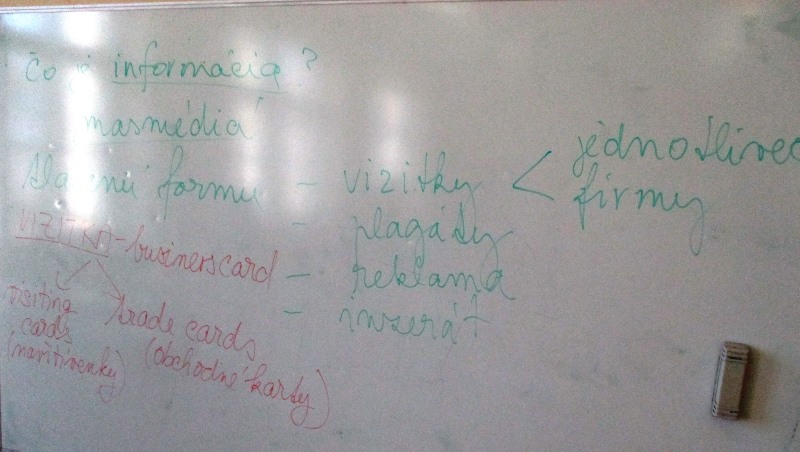 čo je informácia?
masmédiá
formu - vizitky < jednotlivec
firmy
- plagáty
VIZITKA - businesscard - reklama
- inzerát
visiting cards (navštívenky)
trade cards (obchodné karty)